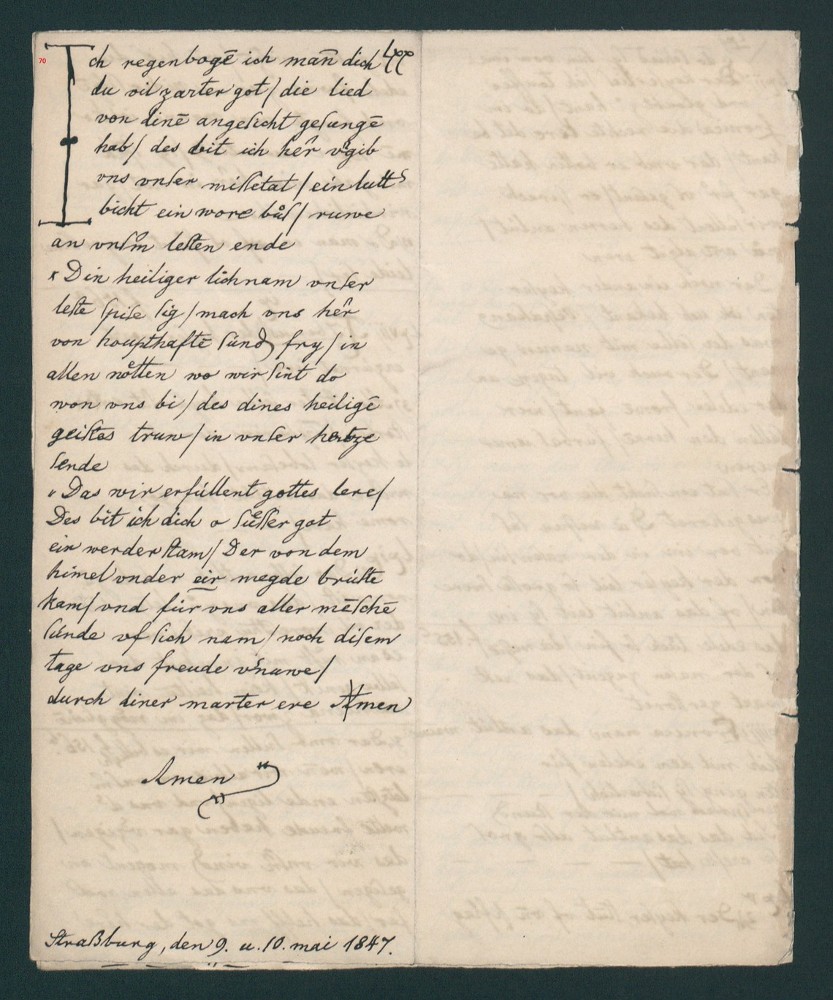 70
Ich regenbogē ich man̄ dich
du vil zarter got / die lied
von dinē angesicht gesungē
hab / des bit ich her̄ v͛gib
vns vnser missetat / ein lutt͛
bicht ein wore bůs / ruwe
an vnsm̄ lesten ende
Din heiliger lichnam vnser
leste spise sig / mach vns her̄
von houpthaftē sünd fry / in
allen nötten wo wir sint do
won vns bi / des dines heiligē
geistes truw / in vnser hertze
sende
Das wir erfüllent gottes lere /
Des bit ich dich o süsser got
ein werder stam / Der von dem
himel vnder eir megde brüste
kam / vnd für vns aller mēschē
sünde vf sich nam / noch disem
tage vns freude v͛nuwe /
durch diner marter ere Amen
Amen
Straßburg, den 9. u. 10. mai 1847.